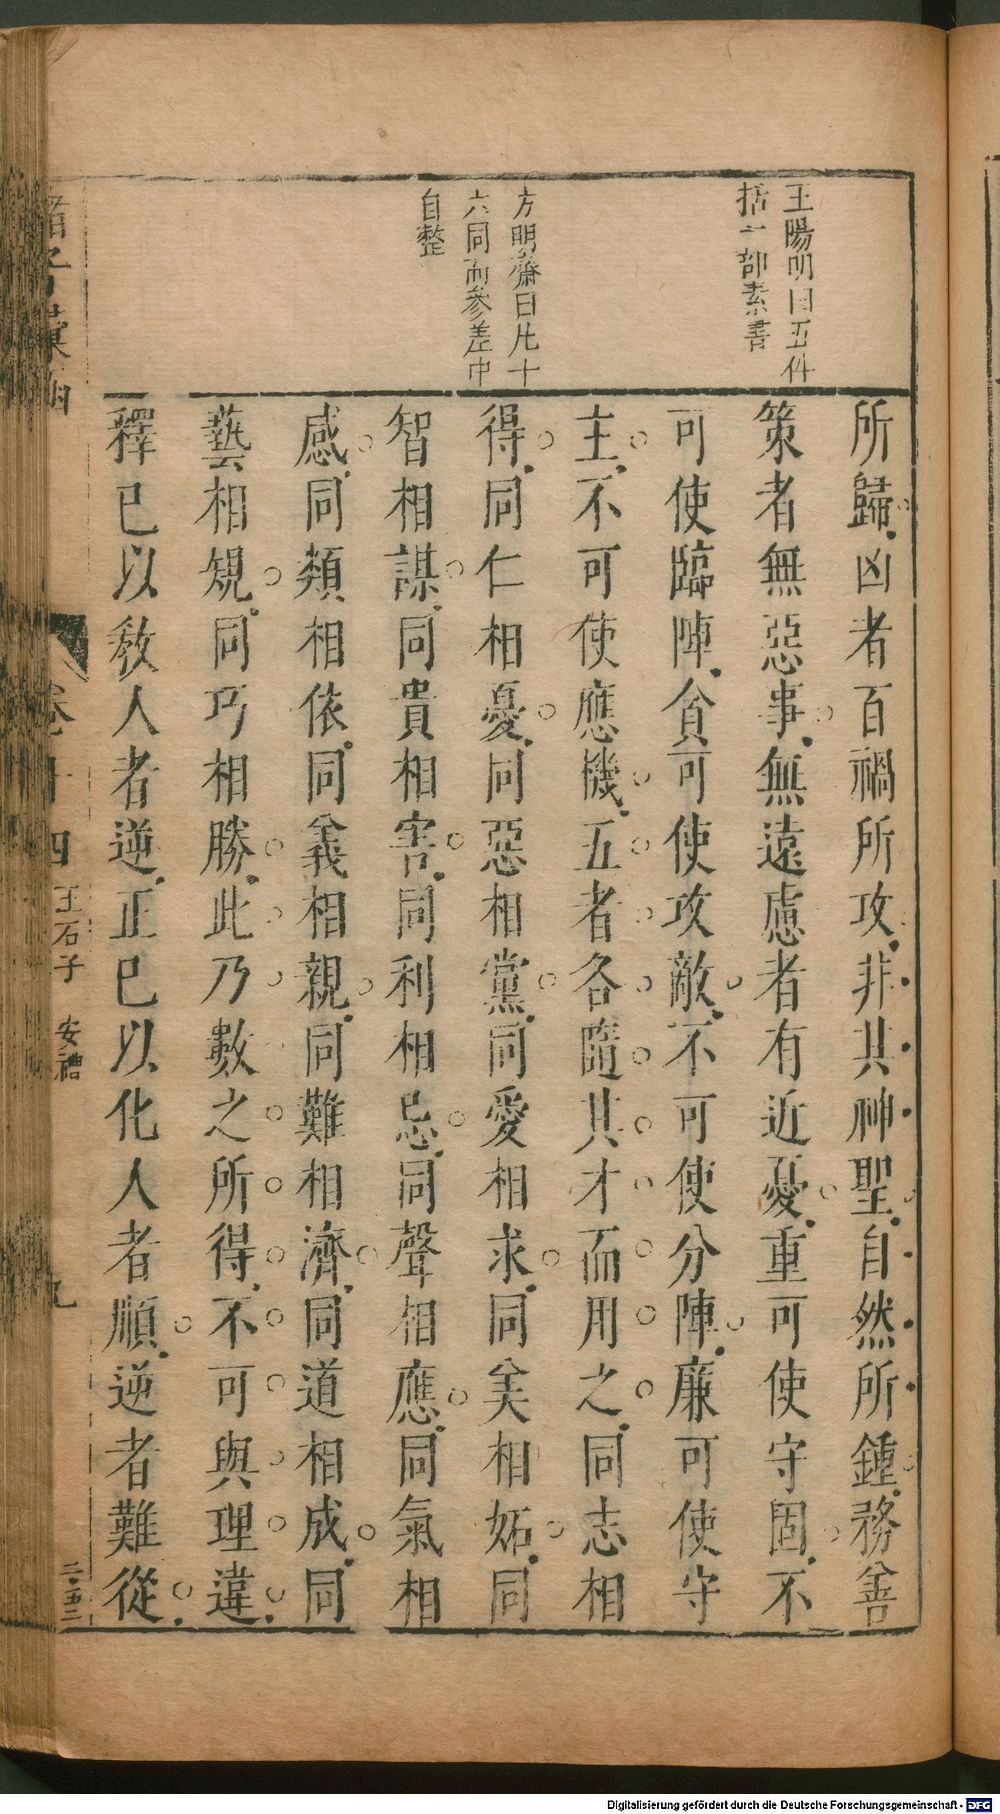 王陽明曰五件
括一部素書
方明齋曰此十
六同而參差中
自整
所歸凶者百禍所攻非其神聖自然所鍾務善
策者無惡事無遠慮者有近憂重可使守固不
可使臨陣貪可使攻敵不可使分陣廉可使守
主不可使應機五者各隨其才而用之同志相
得同仁相憂同惡相黨同愛相求同美相妬同
智相謀同貴相害同利相忌同聲相應同氣相
感同類相依同義相親同難相濟同道相成同
藝相規同巧相勝此乃數之所得不可與理違
釋已以教人者逆正已以化人者順逆者難從
諸子彙函
卷十四
王石子 安禮
九
二五二
Digitalisierung gefördert durch die Deutsche Forschungsgemeinschaft - DFG